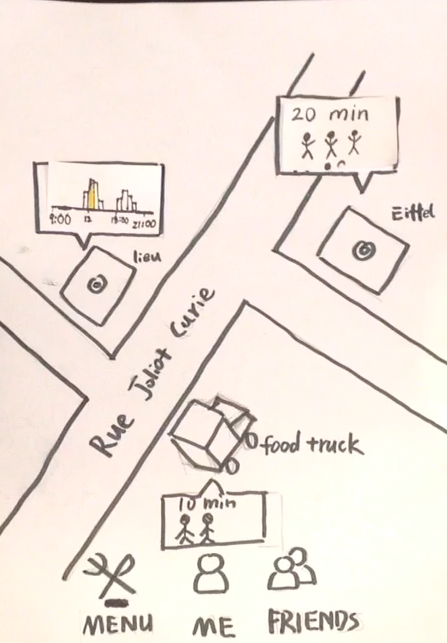 20 min
Eiffel
9:00 12 18:00 21:00
lieu
Rue Joliot Curie
food truck
10 min
MENU ME FRIENDS